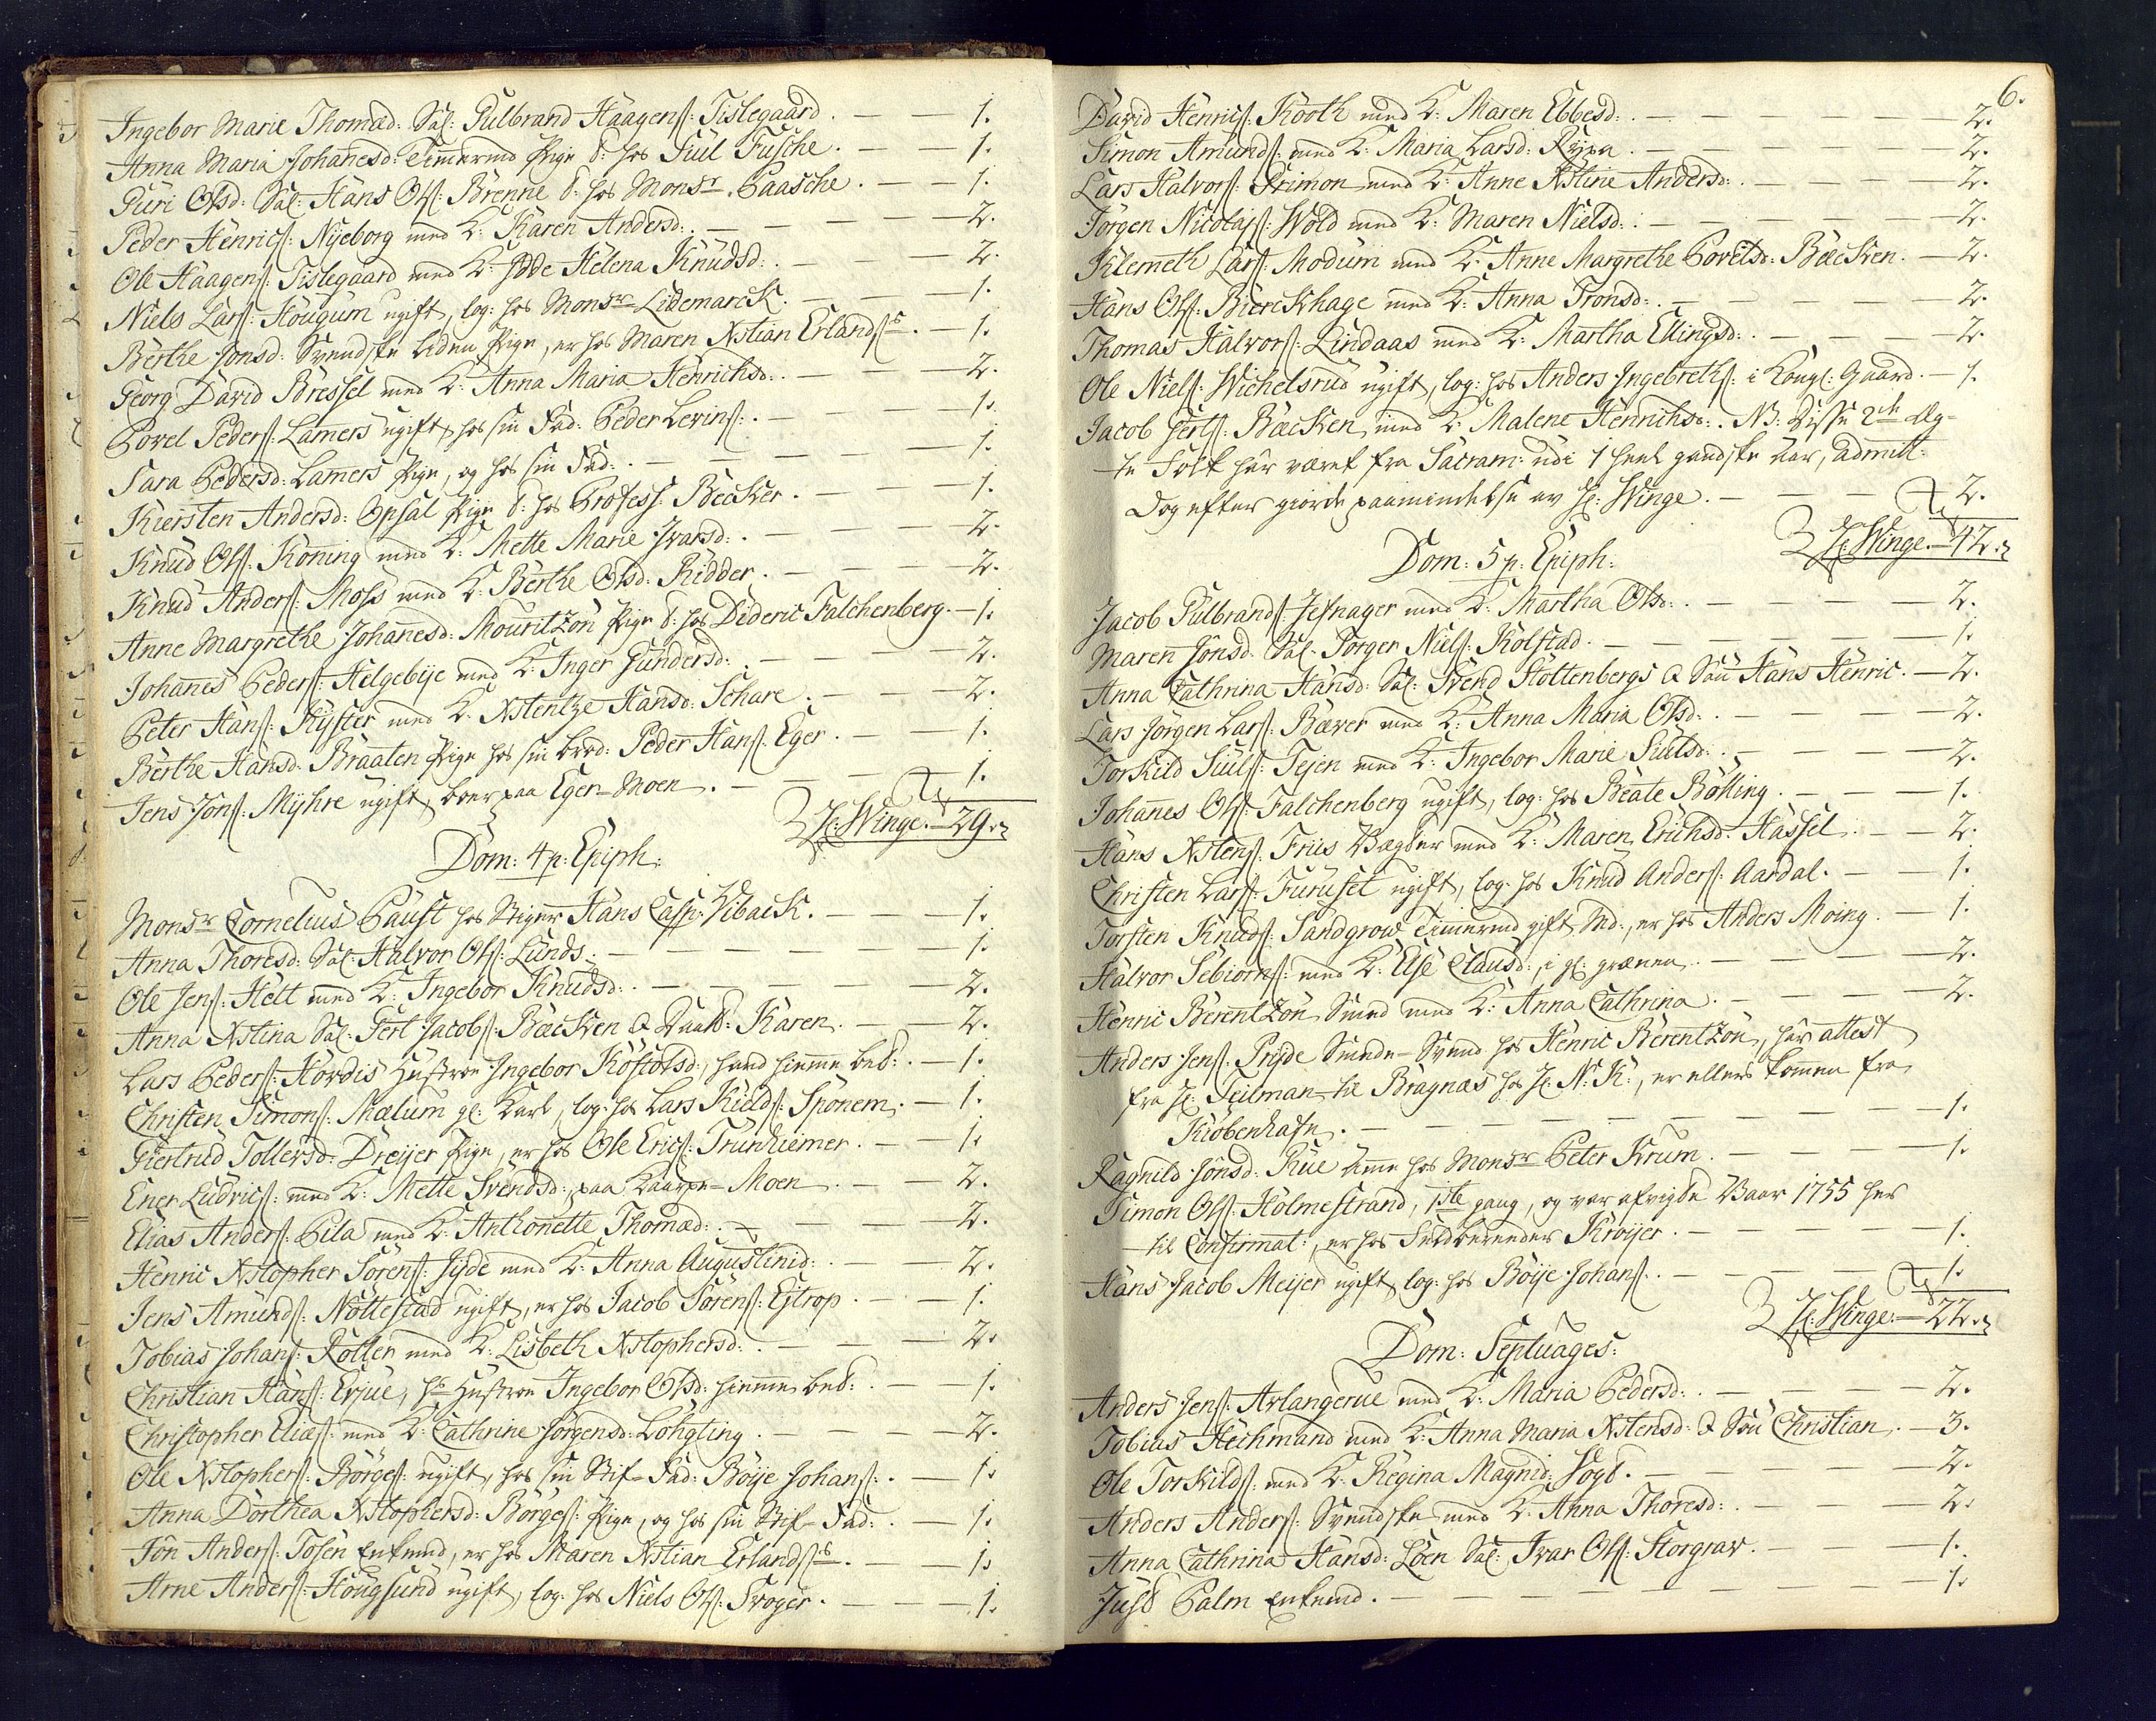 Ingebor Marie Thomæd: Sal: Gulbrand Haagens: Tislegaard. — — 1.
Anna Maria Johanesd: Timmermd Pige d: hos Juil Fusche. — — 1.
Guri Olsd: Sal: Hans Ols: Brenne d: hos Monsr Paasche. — — 1.
Peder Henrics: Nyeborg med K: Karen Andersd: . — — — 2.
Ole Haagens: Tislegaard med K: Idde Helena Knudsd: . — — — 2.
Niels Lars: Hougum ugift, log: hos Monsr Lidemarck. — — 1.
Berthe Jonsd: Svendske liden Pige, er hos Maren Xstian Erlands:s. — 1.
Georg David Bressel med K: Anna Maria Henrichsd: . — — 2.
Povel Peders: Lamers ugift, hos sin Fad: Peder Levins: . — — 1.
Sara Pedersd: Lamers Pige, og hos sin Fad: . — — — 1.
Kiersten Andersd: Opsal Pige d: hos Profess: Becker. — — — 1.
Knud Ols: Koning med K: Mette Marie Ivarsd: . — — — 2.
Knud Anders: Moss med K: Berthe Olsd: Ridder. — — — 2.
Anne Margrethe Johanesd: Mouritzon Pige d: hos Dideric Falchenberg. — 1.
Johanes Peders: Helgebye med K: Inger Gundersd: . — — — 2.
Peter Hans: Hyster med K: Xstentze Hansd: Schare. — — 2.
Berthe Hansd: Braaten Pige hos sin brod: Peder Hans: Eger. — — 1.
Jens Jons: Myhre ugift, boer paa Eger-Moen. — — — 1.
H: Winge. — 29.
Dom: 4 p: Epiph:
Monsr Cornelius Paust hos Stiger Hans Casp: Vibaek. — — — 1.
Anna Thoresd: Sal: Halvor Ols: Lunds. — — — — 1.
Ole Jens: Helt med K: Ingebor Knudsd: . — — — — 2.
Anna Xstina Sal: Gert Jacobs: Bæcken & Datt: Karen. — — 2.
Lars Peders: Hordis Hustroe Ingebor Kostolsd:, hand hiemme bed: . — 1.
Christen Simons: Mælum gl: Karl, log: hos Lars Kields: Sponem. — 1.
Giertrud Tollevsd: Dreyer Pige, er hos Ole Erics: Trunhiemer. — — 1.
Ener Ludvics: med K: Mette Svendsd: paa Kaarpe-Moen. — — 2.
Elias Anders: Pila med K: Anthonette Thomæd: . — — — 2.
Henric Xstopher Sorens: Jyde med K: Anna Augustinid: . — — 2.
Jens Amunds: Nottestad ugift, er hos Jacob Sorens: Ejtrop. — — 1.
Tobias Johans: Rotter med K: Lisbeth Xstophersd: . — — — 2.
Christian Hans: Erjue, hs Hustroe Ingebor Olsd: hiemme bed: . — — 1.
Christopher Eliæs: med K: Cathrine Jorgensd: Lohgting. — — — 2.
Ole Xstophers: Borges: ugift, hos sin Stif-Fad: Boye Johans: . — 1.
Anna Dorthea Xstophersd: Borges: Pige, og hos sin Stif-Fad: . — 1.
Jon Anders: Tosen Enkemd, er hos Maren Xstian Erlands:s. — — 1.
Arne Anders: Hougsund ugift, log: hos Niels Ols: Troger. — — 1.
6.
David Henrics: Kooth med K: Maren Ebbesd: . — — — 2.
Simon Amunds: med K: Maria Larsd: Rypa. — — — 2.
Lars Halvors: Primon med K: Anne Xstine Andersd: . — — — 2.
Jorgen Nicolajs: Wold med K: Maren Nielsd: . — — — 2.
Klemeth Lars: Modum med K: Anne Margrethe Povelsd: Bæcken. — 2.
Hans Ols: Bierckhage med K: Anna Tronsd: . — — — 2.
Thomas Halvors: Lindaas med K: Martha Ellingsd: . — — — 2.
Ole Niels: Wichelsrud ugift, log: hos Anders Ingebreths: i Kongl: Gaard. — 1.
Jacob Gerts: Bæcken med K: Malene Henrichsd: . NB: Disse 2de Æg-
te Folk har været fra Sacram: udi 1 heel gandske Aar, admitt:
Dog efter giorde paamindelse av H: Winge. — — — 2.
H: Winge. — 42.
Dom: 5 p: Epiph:
Jacob Gulbrands: Jefnager med K: Martha Olsd: . — — — 2.
Maren Jonsd: Sal: Torger Niels: Kolstad. — — — 1.
Anna Cathrina Hansd: Sal: Svend Stottenbergs & Søn Hans Henric. — 2.
Lars Jorgen Lars: Bæver med K: Anna Maria Olsd: . — — — 2.
Torkild Siuls: Tejen med K: Ingebor Marie Siulsd: . — — 2.
Johanes Ols: Falchenberg ugift, log: hos Beate Bolling. — — — 1.
Hans Xstens: Friis Vægter med K: Maren Erichsd: Hassel. — — 2.
Christen Lars: Furuset ugift, log: hos Knud Anders: Aardal. — — 1.
Torsten Knuds: Sandgrow Timmermd gift Md:, er hos Anders Moing. — 1.
Halvor Sebiorns: med K: Else Clausd: i gl: grænen. — — — 2.
Henric Berentzon Smed med K: Anna Cathrina. — — — 2.
Anders Jens: Pryde Smede-Svend hos Henric Berentzon, har attest
fra H: Teilman til Bragnæs hos H: N: K:, er ellers komen fra
Kiobenhafn. — — — — — 1.
Ragnild Jonsd: Rue Ame hos Monsr Peter Krum. — — — 1.
Simon Ols: Holmestrand, 1ste gang, og var afvigte Vaar 1755 her
til Confirmat:, er hos Krøyer. — — — 1.
Hans Jacob Meijer ugift log: hos Boye Johans: . — — — 1.
H: Winge. — 22.
Dom: Septuages:
Anders Jens: Arlangerue med K: Maria Pedersd: . — — — 2.
Tobias Hechmand med K: Anna Maria Xstensd: & Søn Christian. — 3.
Ole Torkilds: med K: Regina Magnid: Fogt. — — — 2.
Anders Anders: Svendske med K: Anna Thoresd: . — — — 2.
Anna Cathrina Hansd: Loen Sal: Ivar Ols: Storgrav. — — — 1.
Just Palm Enkemd. — — — — — 1.